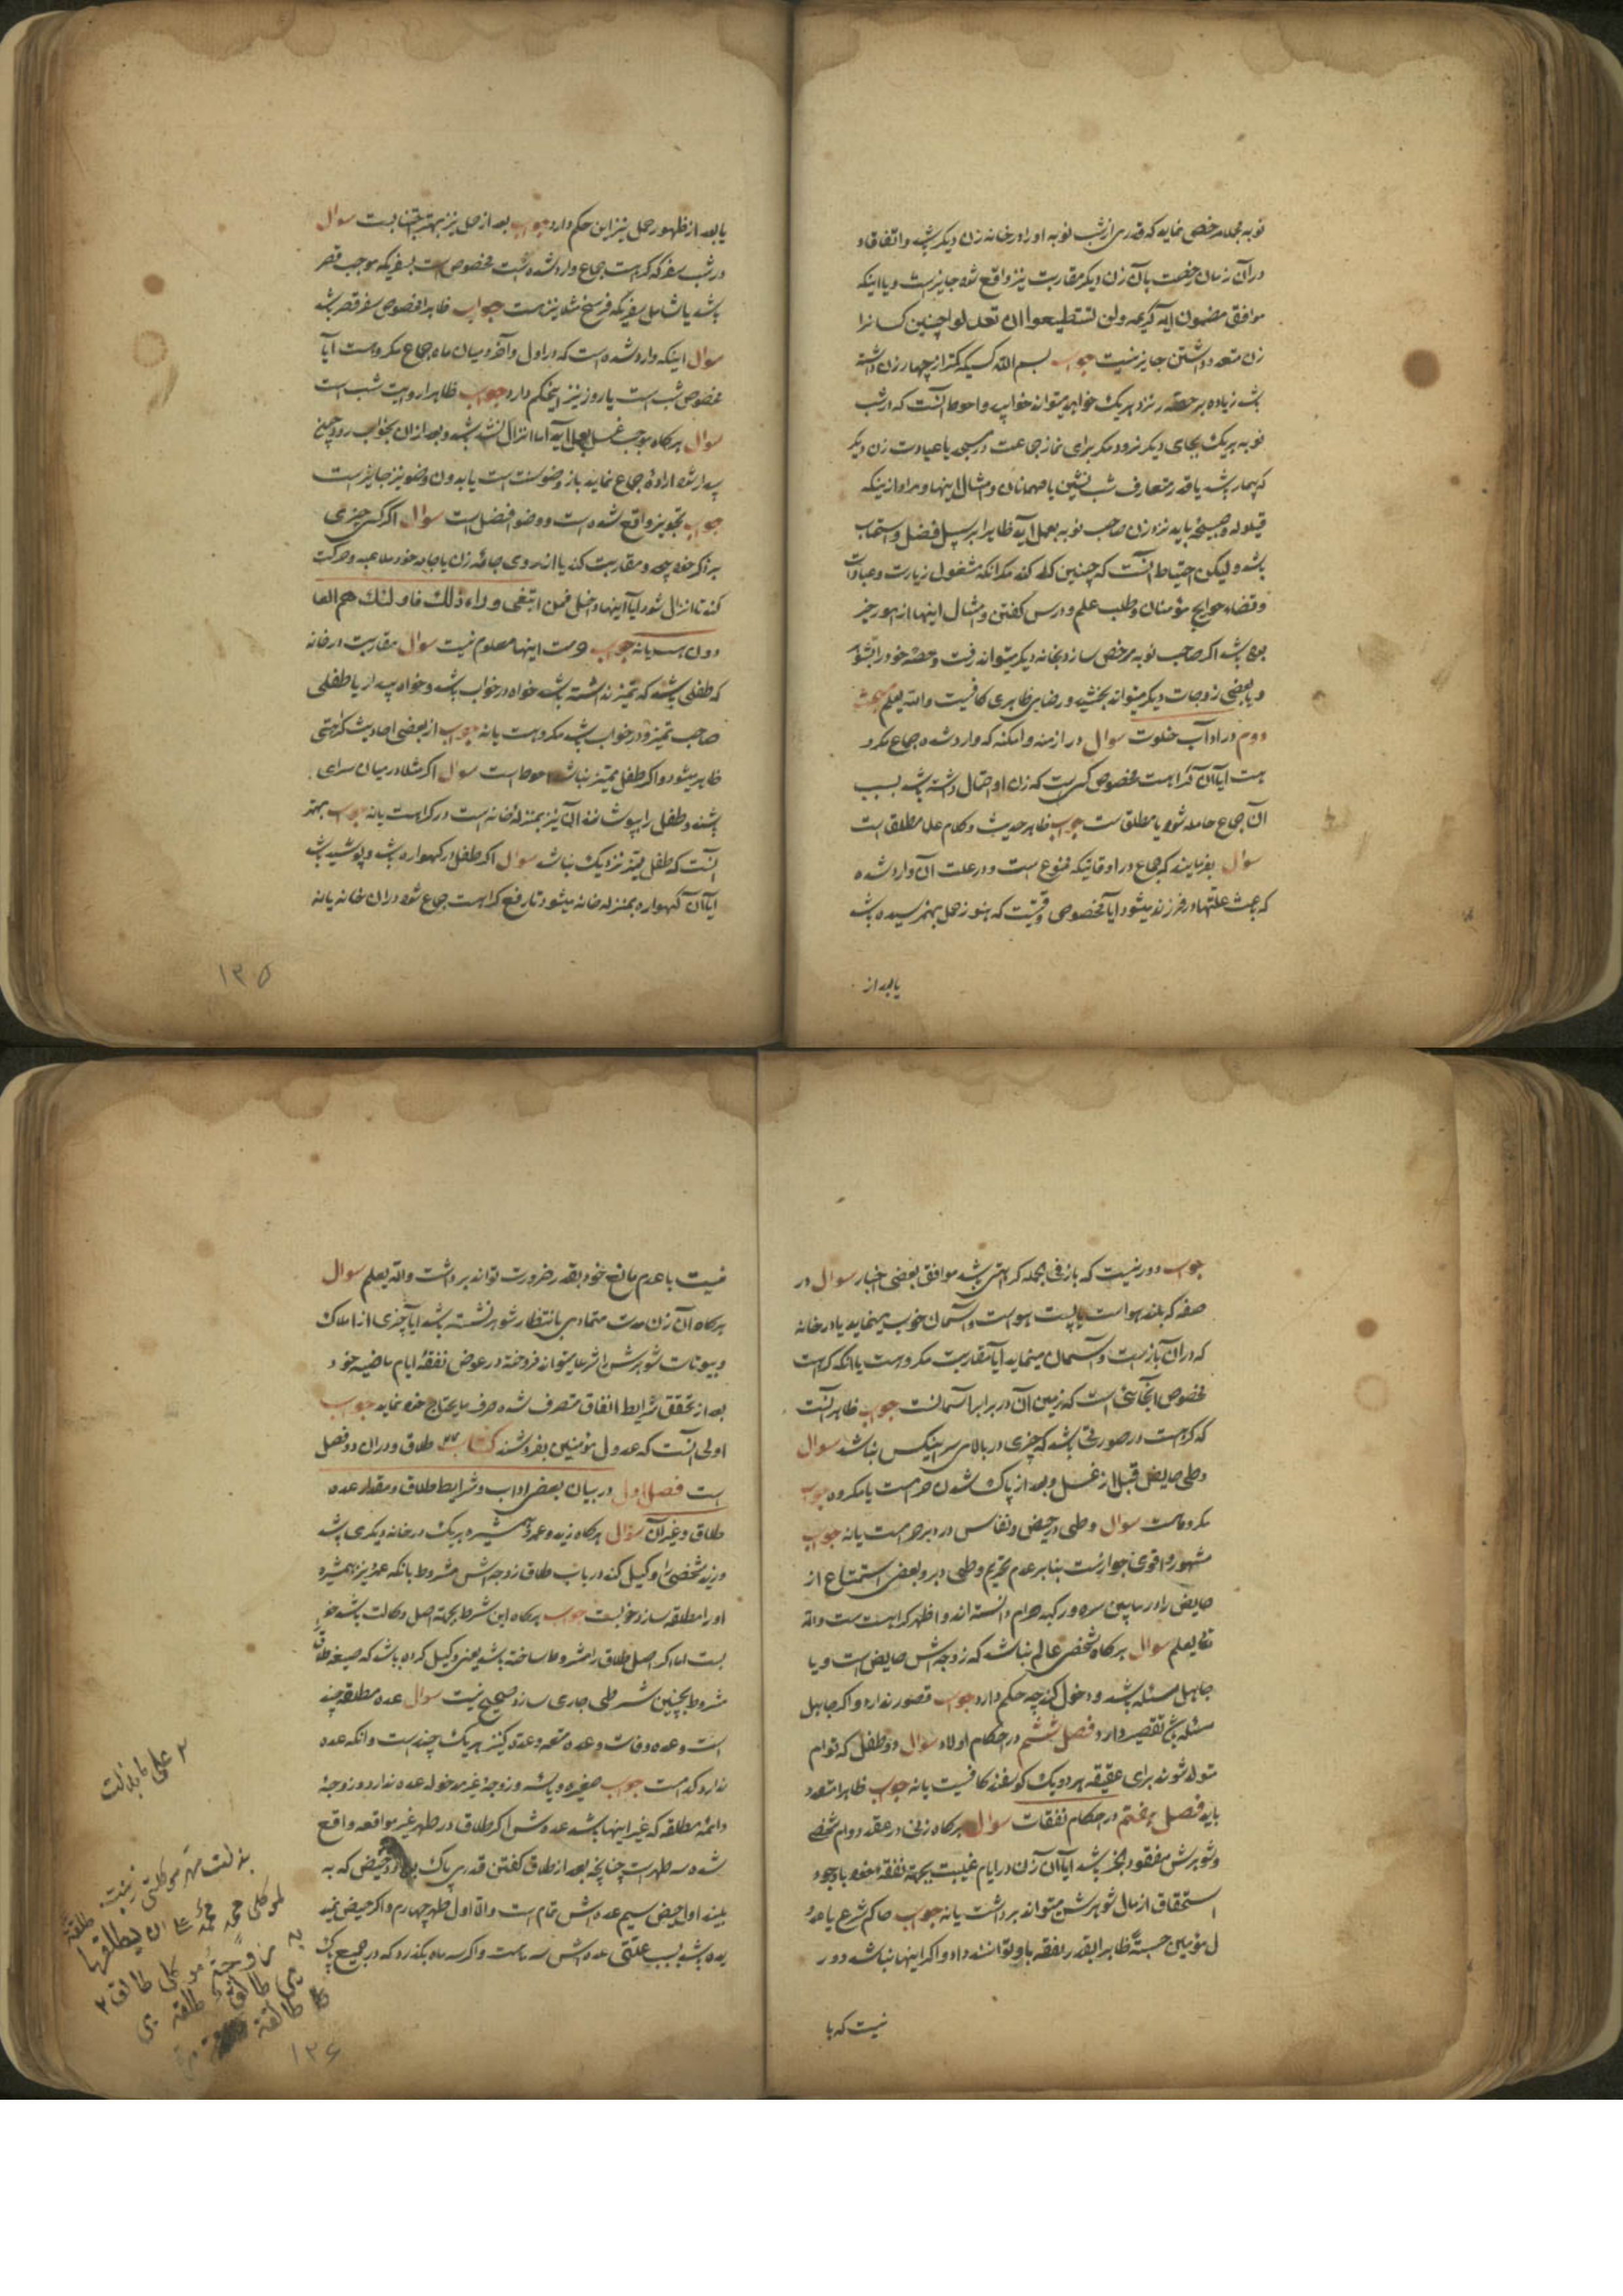 نوبه بجمله مرخص نماید که قدری از شب نوبه او را در خانه زن دیکر باشد و اتفاقا و
در آن زمان رخصت با آن زن دیکر مقاربت نیز واقع شود جایز است و یا اینکه
موافق مضمون آیه کریمه ولن تستطیعوا ان تعدلوا چنین کسانرا
زن متعدد داشتن جایز نیست جواب بسم الله کسیکه کمتر از چهار زن داشته
باشد زیاده بر حصه در نزد هر یک خواهد میتواند خوابید و احوط آنست که در شب
نوبه هر یک بجای دیکر نرود مکر برای نماز جماعت در مسجد یا عیادت زن دیکر
که بیمار باشد یا قدر متعارف شب نشین با مهمانان و امثال اینها و مراد از اینکه
قیلوله و صبیحه باید نزد زن صاحب نوبه بعمل آید ظاهرا بر سبیل فضل و استحباب
باشد و لیکن احتیاط آنست که چنین کند مکر آنکه مشغول زیارت و عبادات
و قضاء حوایج مؤمنان و طلب علم و درس کفتن و امثال اینها از امور خیر
بوده باشد اکر صاحب نوبه مرخص سازد بخانه دیکر میتواند رفت و حصه خود را بشوهر
و یا بعضی زوجات دیکر میتواند بخشید و رضای ظاهری کافیست والله یعلم مبحث
دوم در آداب خلوت سوال در ازمنه و امکنه که وارد شده جماع مکرو
هست آیا آن کراهت مخصوص کسی است که زن او احتمال داشته باشد بسبب
آن جماع حامله شود یا مطلق است جواب ظاهر حدیث و کلام علما مطلق است
سوال بفرمایند که جماع در اوقاتیکه ممنوع است و در علت آن وارد شده
که باعث علتها در فرزند میشود آیا مخصوص وقتیست که هنوز حمل بهم نرسیده باشد
یا بعد از
یا بعد از ظهور حمل نیز این حکم دارد جواب بعد از حمل نیز بهتر اجتنابست سوال
در شب سفر که کراهت جماع وارد شده است مخصوص است بسفریکه موجب قصر
باشد یا شامل سفر یکفرسخ مثلا نیز هست جواب ظاهرا خصوص سفر قصر باشد
سوال اینکه وارد شده است که در اول و آخر و میان ماه جماع مکروهست آیا
مخصوص شب است یا روز نیز اینحکم دارد جواب ظاهرا روایت شب است
سوال هرکاه موجب غسل بعمل آید اما انزال نشده باشد و بعد از آن بخواب رود و چون
بیدار شود اراده جماع نماید باز وضو سنت است یا بدون وضو نیز جایز است
جواب تجویز واقع شده است و وضو افضل است سوال اکر کسی چیزی
بر ذکر خود پیچد و مقاربت کند یا از روی جامه زن یا جامه خود ملاعبه و حرکت
کند تا انزال شود آیا اینها داخل فمن ابتغی وراء ذلک فاولئک هم العا
دون هست یا نه جواب حرمت اینها معلوم نیست سوال مقاربت در خانه
که طفلی باشد که تمیز نداشته باشد خواه در خواب باشد و خواه بیدار یا طفلی
صاحب تمیز و در خواب باشد مکروهست یا نه جواب از بعضی احادیث کراهتی
ظاهر میشود و اکر طفل ممیز نباشد احوط است سوال اکر مثلا در میان سرای
باشند و طفل را بپوشانند آن نیز بمنزله خانه است در کراهت یا نه جواب بهتر
آنست که طفل ممیز نزدیک نباشد سوال اکر طفل در کهواره باشد و پوشیده باشد
آیا آن کهواره بمنزله خانه میشود تا رفع کراهت جماع شود در ان خانه یا نه
١٣٥
جواب دور نیست که باز فی الجمله کراهتی باشد موافق بعضی اخبار سوال در
صفه که بلند هواست یا پست هواست و آسمان خوب مینماید یا در خانه
که در آن باز است و آسمان مینماید آیا مقاربت مکروهست یا آنکه کراهت
مخصوص آنجائی است که زمین آن در برابر آسمانست جواب ظاهر آنست
که کراهت در صورتی باشد که چیزی در بالای سر اینکس نباشد سوال
وطی حایض قبل از غسل و بعد از پاک شدن حرامست یا مکروه جواب
مکروهست سوال وطی در حیض و نفاس در دبر حرامست یا نه جواب
مشهور و اقوی جوازست بنابر عدم تحریم وطی دبر و بعضی استمتاع از
حایض را در مابین سره و رکبه حرام دانسته اند و اظهر کراهت است والله
تعا یعلم سوال هرکاه شخصی عالم نباشد که زوجه اش حایض است و یا
جاهل مسئله باشد و دخول کند چه حکم دارد جواب قصور ندارد و اکر جاهل
مسئله باشد تقصیر دارد فصل ششم در احکام اولاد سوال دو طفل که توام
متولد شوند برای عقیقه هر دو یک کوسفند کافیست یا نه جواب ظاهرا متعدد
باید فصل هفتم در احکام نفقات سوال هرکاه زنی در عقد دوام شخصی
و شوهرش مفقود الخبر باشد آیا آن زن در ایام غیبت بجهت نفقه خود با وجود
استحقاق از مال شوهرش میتواند برداشت یا نه جواب حاکم شرع یا عدو
ل مؤمنین حسبة ظاهرا بقدر نفقه باو توانند داد و اکر اینها نباشد دور
نیست که با
نیست با عدم مانع خود بقدر ضرورت تواند برداشت والله یعلم سوال
هرکاه آن زن مدت متمادی بانتظار شوهر نشسته باشد آیا چیزی از املاک
و بیوتات شوهرش را شرعا میتواند فروخته در عوض نفقه ایام ماضیه خود
بعد از تحقق شرایط انفاق متصرف شده صرف مایحتاج خود نماید جواب
اولی آنست که عدول مؤمنین بفروشند کتاب طلاق و در ان دو فصل
است فصل اول در بیان بعضی اداب و شرایط طلاق و مقدار عده
طلاق و غیر آن سؤال هرکاه زید و عمرو همشیره هر یک در خانه دیکری باشد
و زید شخصی را وکیل کند در باب طلاق زوجه اش مشروط بانکه عمرو نیز همشیره
او را مطلقه سازد خوبست جواب هرکاه این شرط بجهت اصل وکالت باشد خو
بست اما اکر اصل طلاق را مشروط ساخته باشد یعنی وکیل کرده باشد که صیغه طلاق
مشروط بچنین شرطی جاری سازد صحیح نیست سوال عده مطلقه چند
است و عده وفات و عده متعه و عده کنیز هر یک چند است و آنکه عده
ندارد کدامست جواب صغیره و یائسه و زوجه غیر مدخوله عده ندارد و زوجه
دائمه مطلقه که غیر اینها باشد عده اش اکر طلاق در طهر غیر مواقعه واقع
شده سه طهر است چنانچه بعد از طلاق کفتن قدری پاک بوده و حیض که به
بیند اول حیض سیم عده اش تمام است والا اول طهر چهارم و اکر حیض نمید
یده باشد بسبب علتی عده اش سه ماهست و اکر سه ماه بگذرد که در جمیع پاک
١٣٦